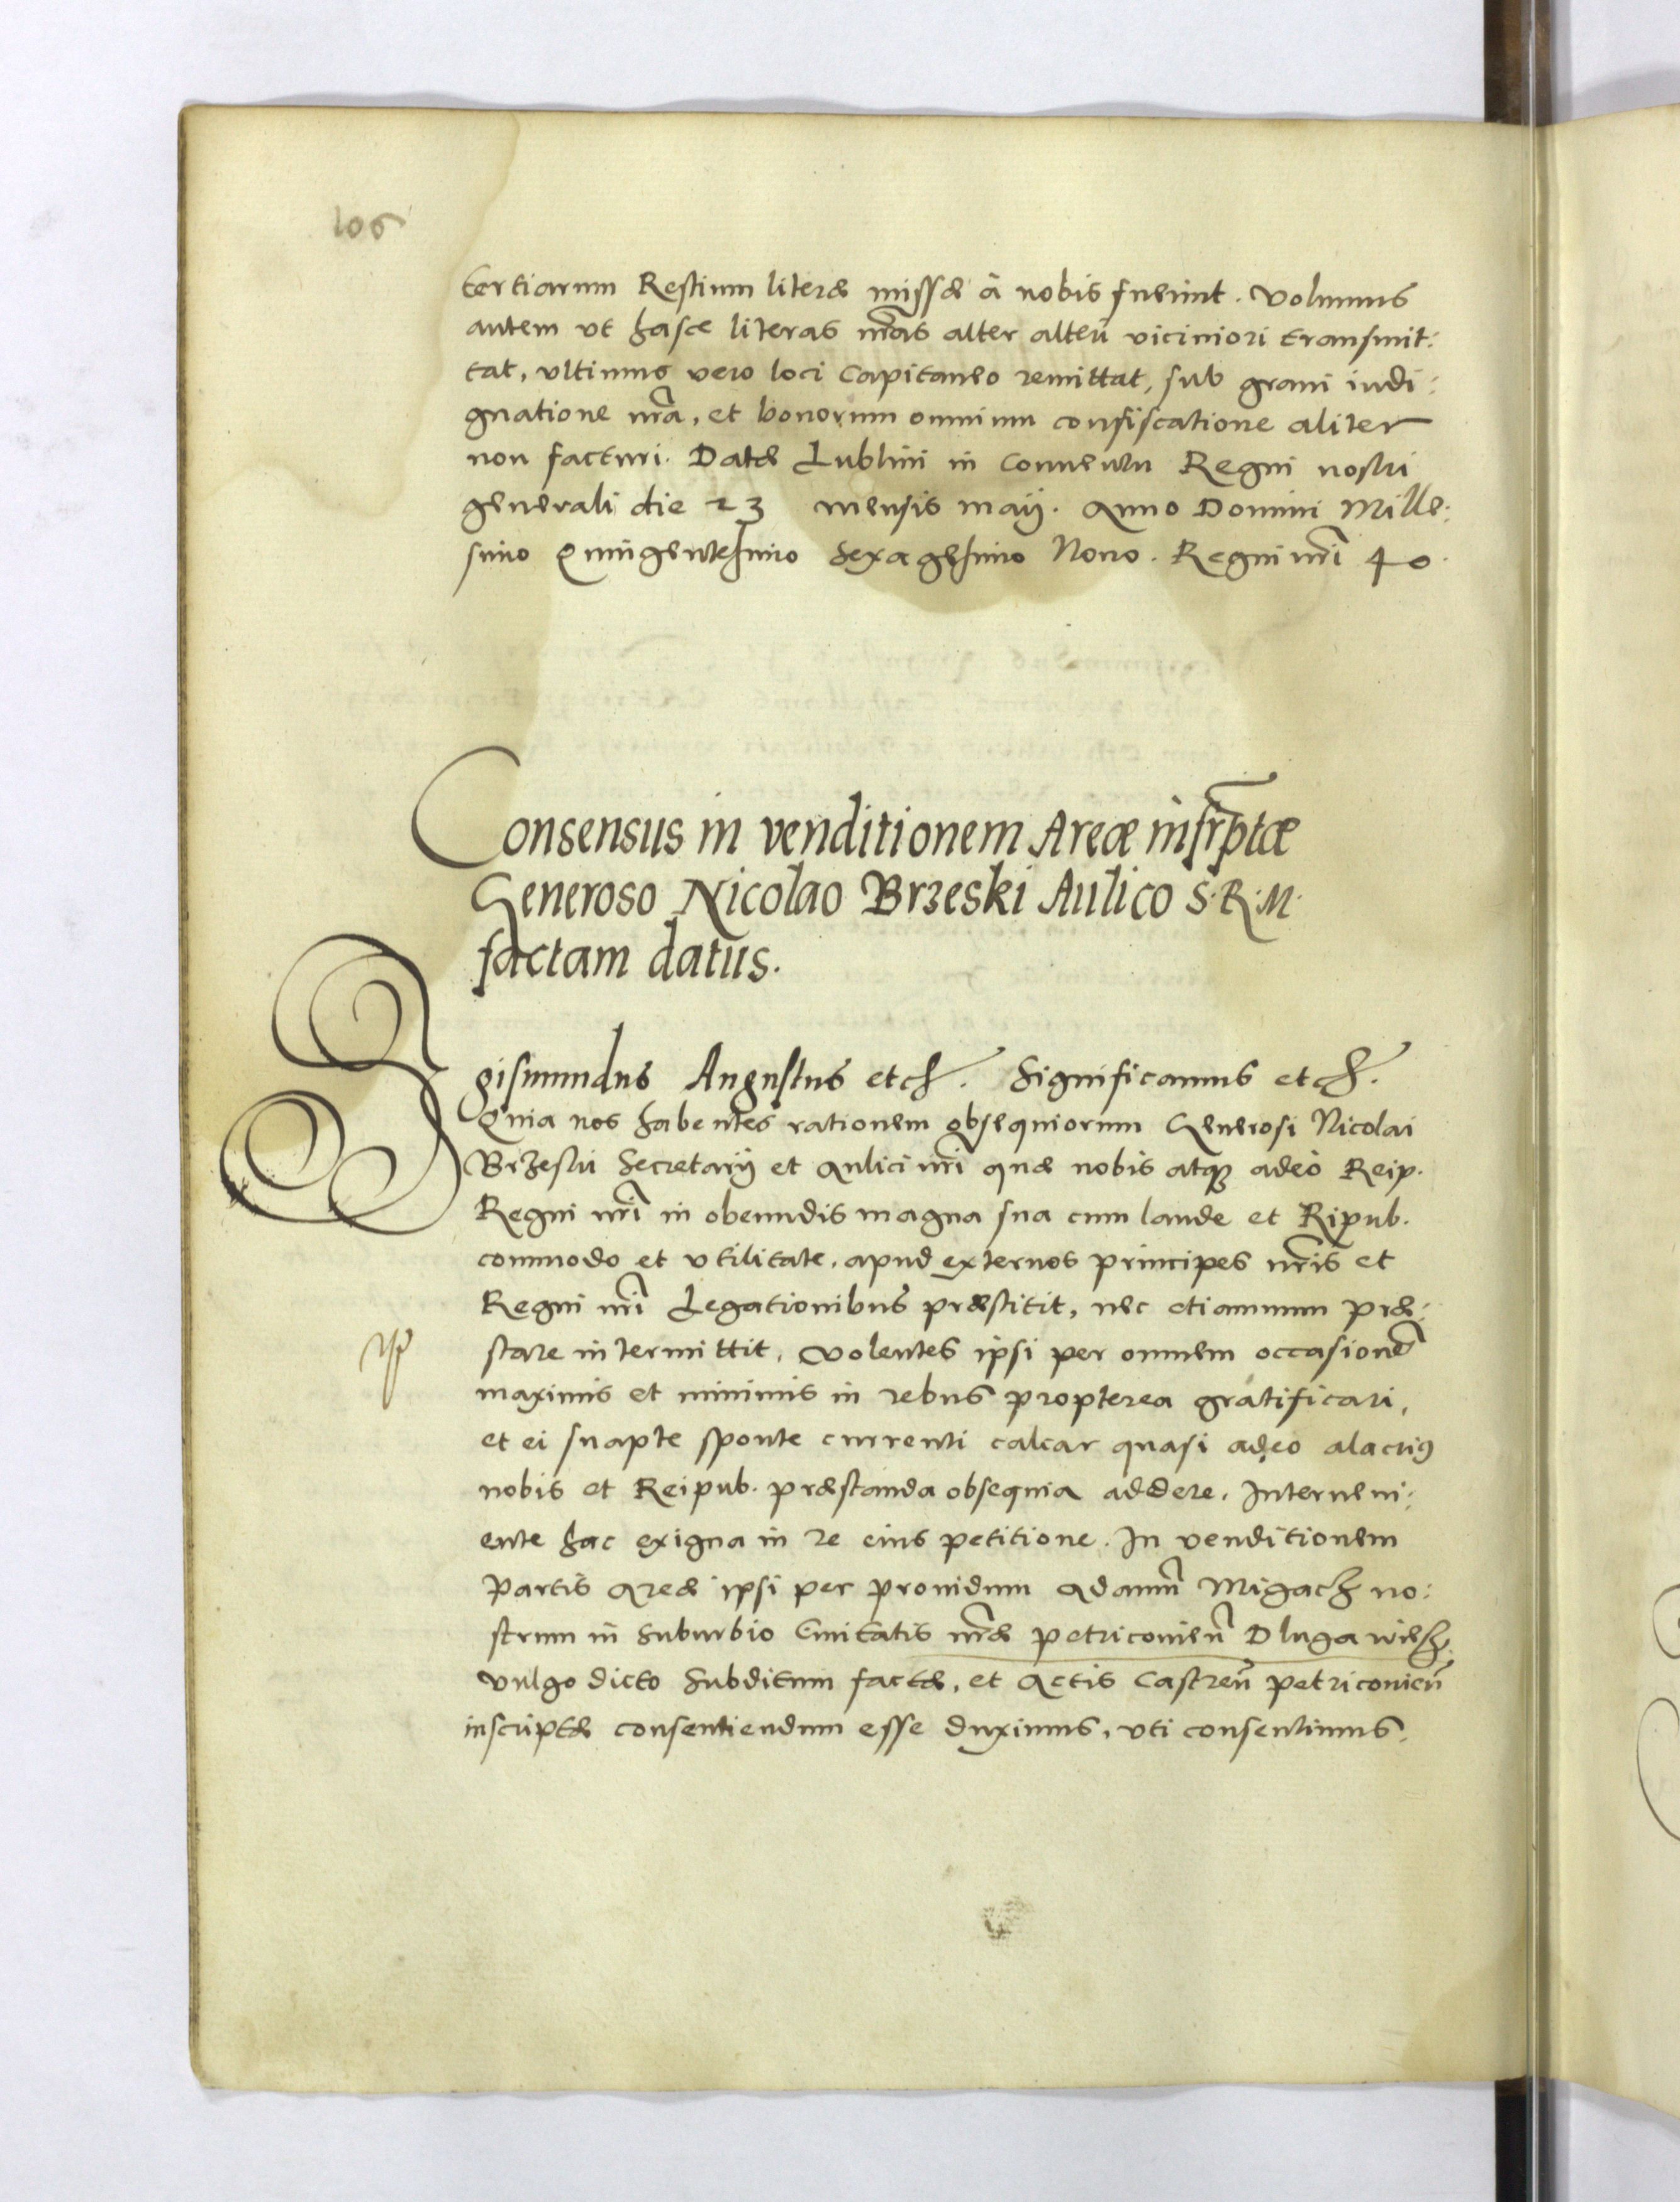 106
tertiarum Restium literæ missæ à nobis fuerint. Volumus
autem ut hasce literas nr̃as alter alteri viciniori transmit:
tat, ultimus vero loci Capitaneo remittat, sub gravi indi:
gnatione nr̃a, et bonorum omnium confiscatione aliter
non facturi. Datæ Lublini in Conventu Regni nostri
generali die 23 mensis maij. Anno Domini Mille:
simo Quingentesimo Sexagesimo Nono. Regni nr̃i 40.
Consensus in venditionem Areæ infrr̃ptæ
Generoso Nicolao Brzeski Aulico S.R.M.
factam datus.
Sigismundus Augustus etc. Significamus etc.
Quia nos habentes rationem obsequiorum Generosi Nicolai
Brzeski Secretarij et Aulici nr̃i quæ nobis atq; adeò Reip.
Regni nr̃i in obeundis magna sua cum laude et Ripub.
commodo et utilitate, apud externos principes nr̃is et
Regni nr̃i Legationibus præstitit, nec etiamnum præ:
stare intermittit, volentes ipsi per omnem occasionẽ
maximis et minimis in rebus propterea gratificari,
et ei suapte sponte currenti calcar quasi adeo alacrius
nobis et Reipub. præstanda obsequia addere, Interveni:
ente hac exigua in re eius petitione. In venditionem
Partis Areæ ipsi per providum Adamũ Migacz no:
strum in Suburbio Civitatis nr̃æ petricovieñ Dluga wies
vulgo dicto Subditum factæ, et Actis Castreñ petricovieñ
inscriptæ consentiendum esse duximus, uti consentimus.